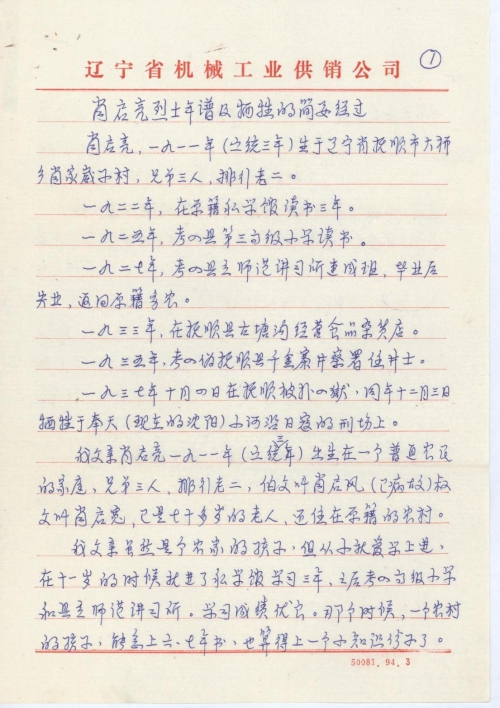 ①
辽宁省机械工业供销公司
肖启亮烈士年谱及牺牲的简要经过
肖启亮,一九一一年(宣统三年)生于辽宁省抚顺市大
乡肖家崴子村,兄弟三人,排行老二。
一九二二年,在原籍私学馆读书三年。
一九二五年,考入县第三高级小学读书。
一九二七年,考入县立师范讲习所速成班,毕业后
失业,返回原籍务农。
一九三三年,在抚顺县古塘沟经营食品杂货店。
一九三五年,考入伪抚顺县千金寨警察署任井士。
一九三七年十月四日在抚顺被捕入狱,同年十二月三日
牺牲于奉天(现在的沈阳)小河沿日寇的刑场上。
我父亲肖启亮一九一一年(宣统三年)出生在一个普通农民
的家庭,兄弟三人,排行老二,伯父叫肖启风(已病故)叔
父叫肖启宽,已是七十多岁的老人,还住在原籍的农村。
我父亲虽然是个农家的孩子,但从小就爱学上进,
在十一岁的时候就进了私学馆学习三年,之后考入高级小学
和县立师范讲习所。学习成绩优良。那个时候,一个农村
的孩子,能念上六、七年书,也算得上一个小知识份子了。
50081.94.3